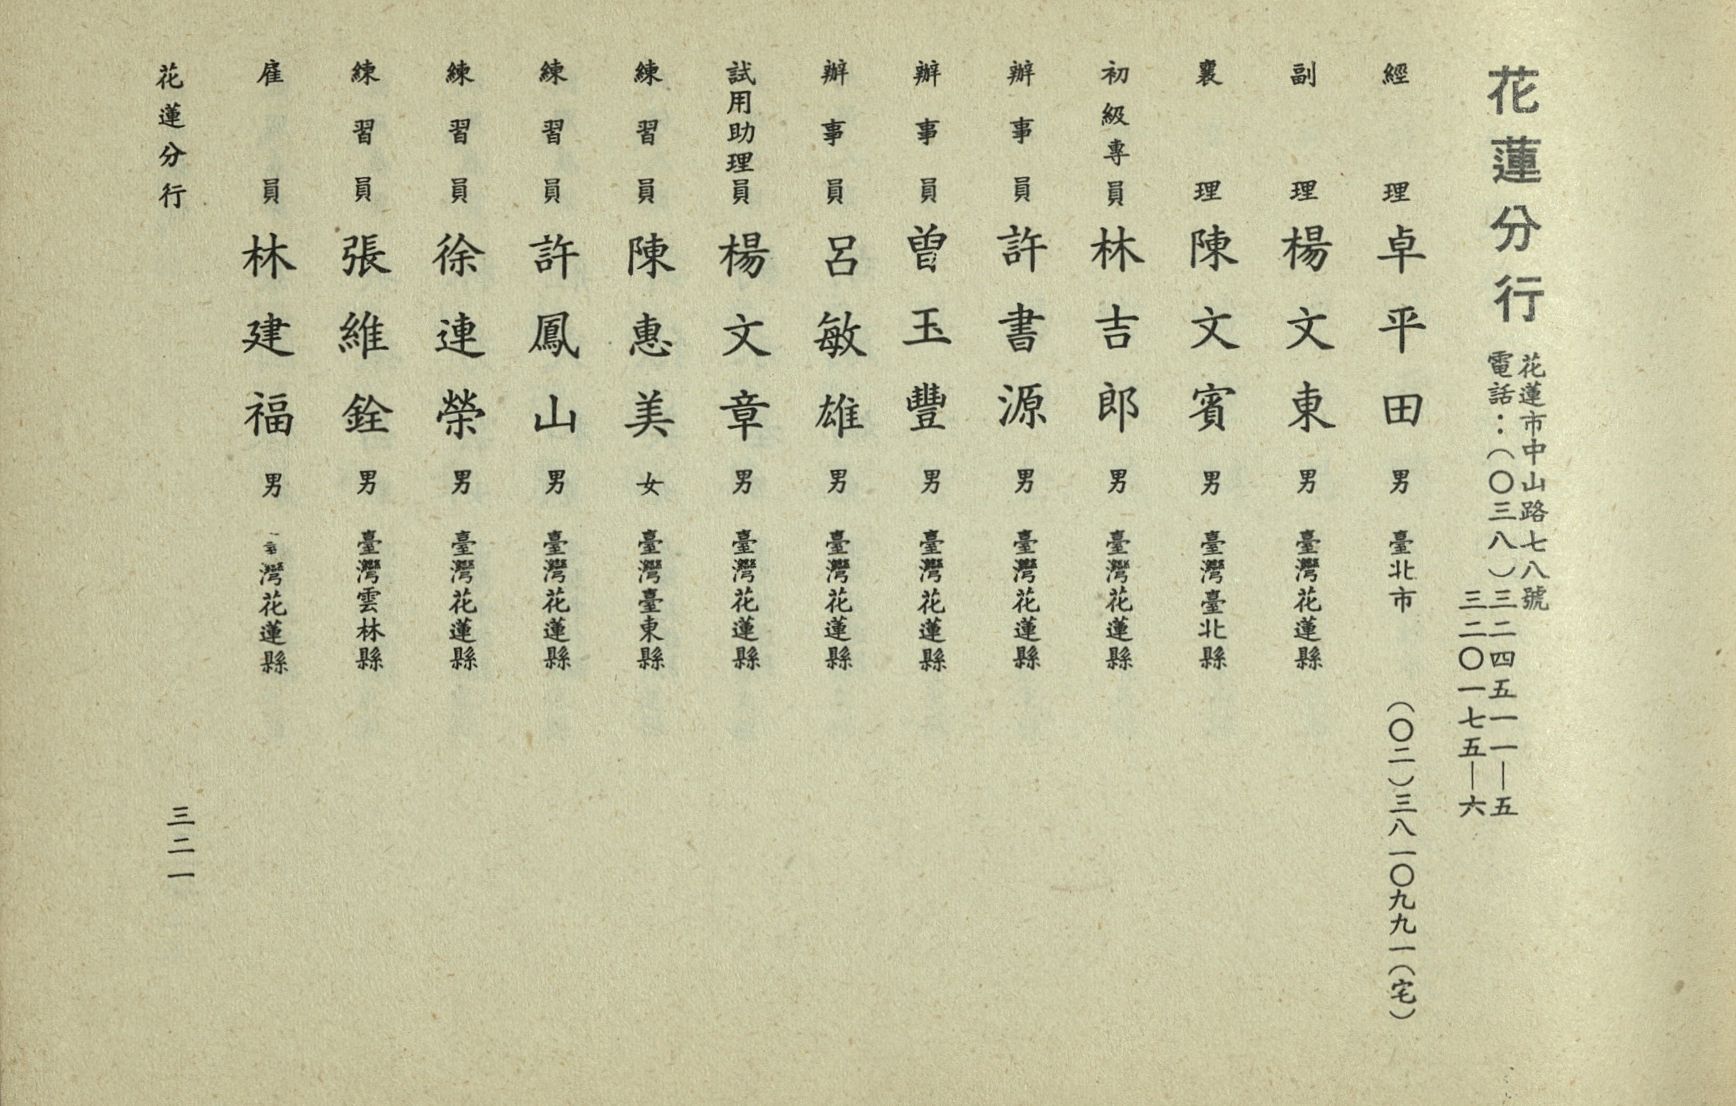 花蓮分行
花蓮市中山路七八號
電話：（〇三八）三二四五一一—五
三二〇一七五—六
經理 卓平田 男 臺北市 （〇二）三八一〇九九一（宅）
副理 楊文東 男 臺灣花蓮縣
襄理 陳文賓 男 臺灣臺北縣
初級專員 林吉郎 男 臺灣花蓮縣
辦事員 許書源 男 臺灣花蓮縣
辦事員 曾玉豐 男 臺灣花蓮縣
辦事員 呂敏雄 男 臺灣花蓮縣
試用助理員 楊文章 男 臺灣花蓮縣
練習員 陳惠美 女 臺灣臺東縣
練習員 許鳳山 男 臺灣花蓮縣
練習員 徐連榮 男 臺灣花蓮縣
練習員 張維銓 男 臺灣雲林縣
雇員 林建福 男 臺灣花蓮縣
花蓮分行
三二一